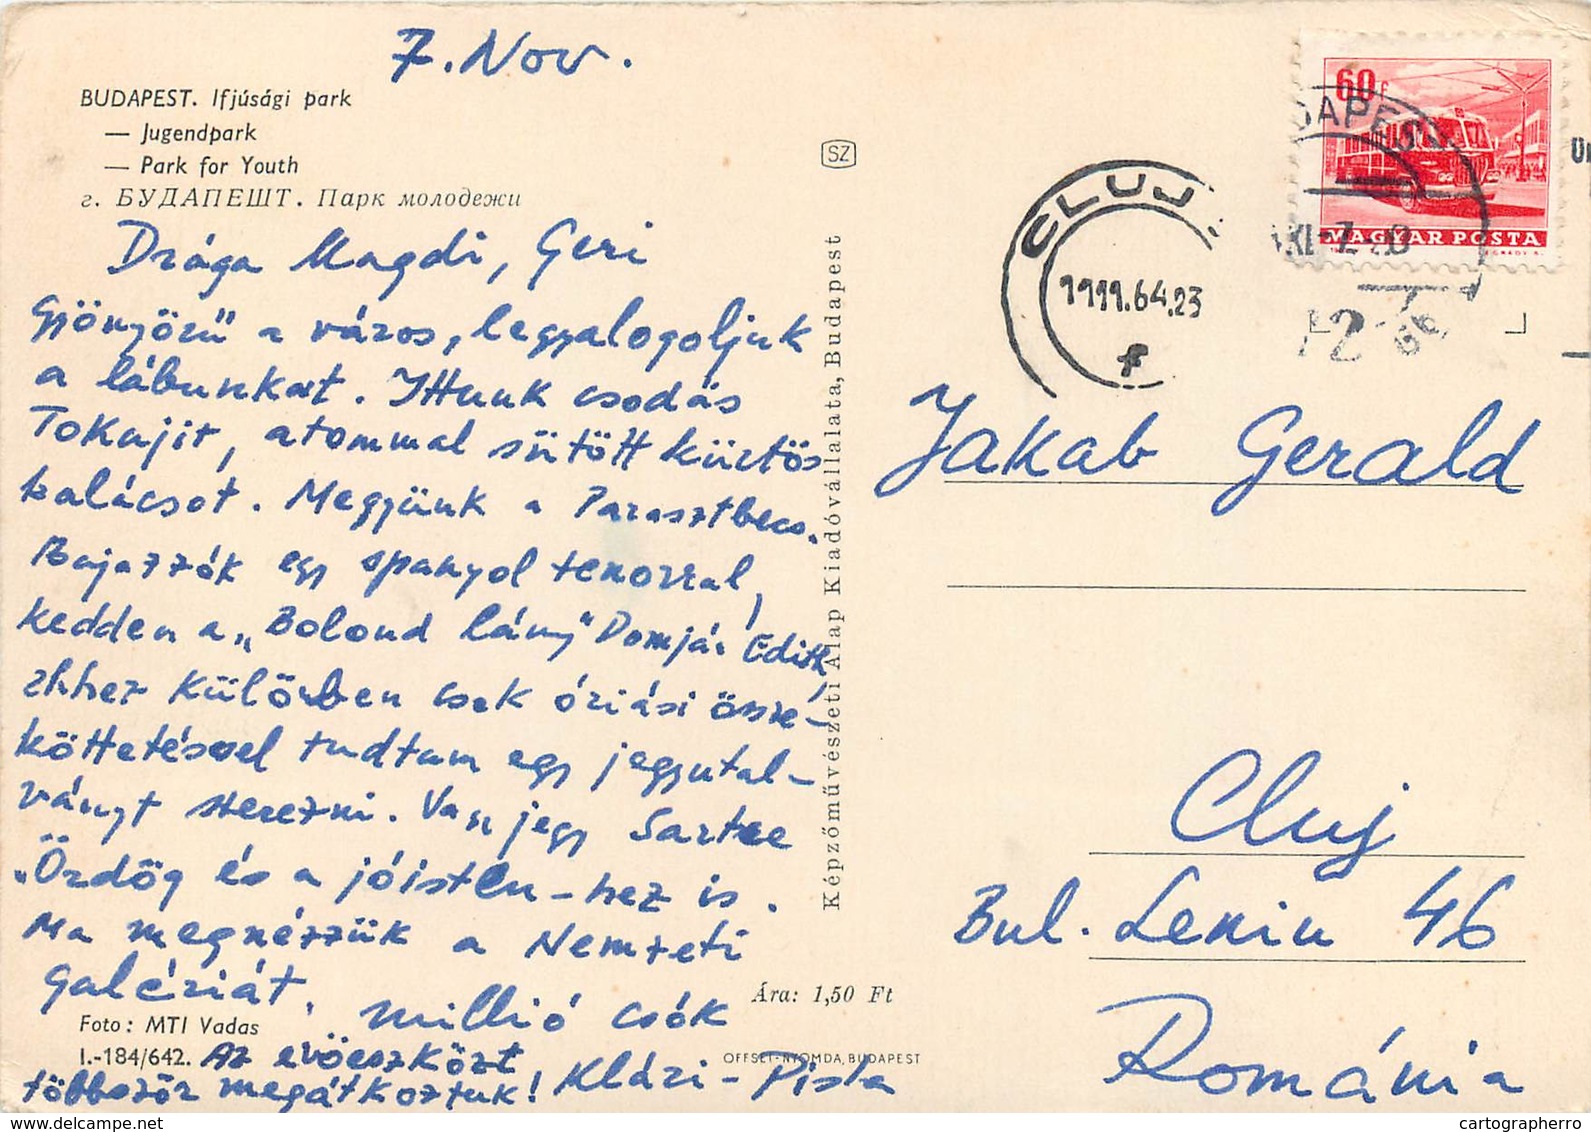 7. Nov.
BUDAPEST. Ifjúsági park
— Jugendpark
— Park for Youth
г. БУДАПЕШТ. Парк молодежи
Drága Magdi, Geri
Gyönyörű a város, legyalogoljuk
a lábunkat. Ittunk csodás
Tokajit, atommal sütött kürtös
kalácsot. Megyünk a Parasztbecs.
Bajazzók egy spanyol tenorral,
kedden a „Bolond lány" Domján Edith,
ehhez különben csak óriási össze-
köttetéssel tudtam egy jegyutal-
ványt szerezni. Van jegy Sartre
„Ördög és a jóisten-hez is.
Ma megnézzük a Nemzeti
Galériát, millió csók
Az evőeszközt
többször megátkoztuk! Klári-Pista
Foto: MTI Vadas
I.-184/642.
Ára: 1,50 Ft
OFFSET-NYOMDA, BUDAPEST
SZ
Képzőművészeti Alap Kiadóvállalata, Budapest
CLUJ
1911.64.23
60f
MAGYAR POSTA
Jakab Gerald
Cluj
Bul. Lenin 46
Románia
cartographerro